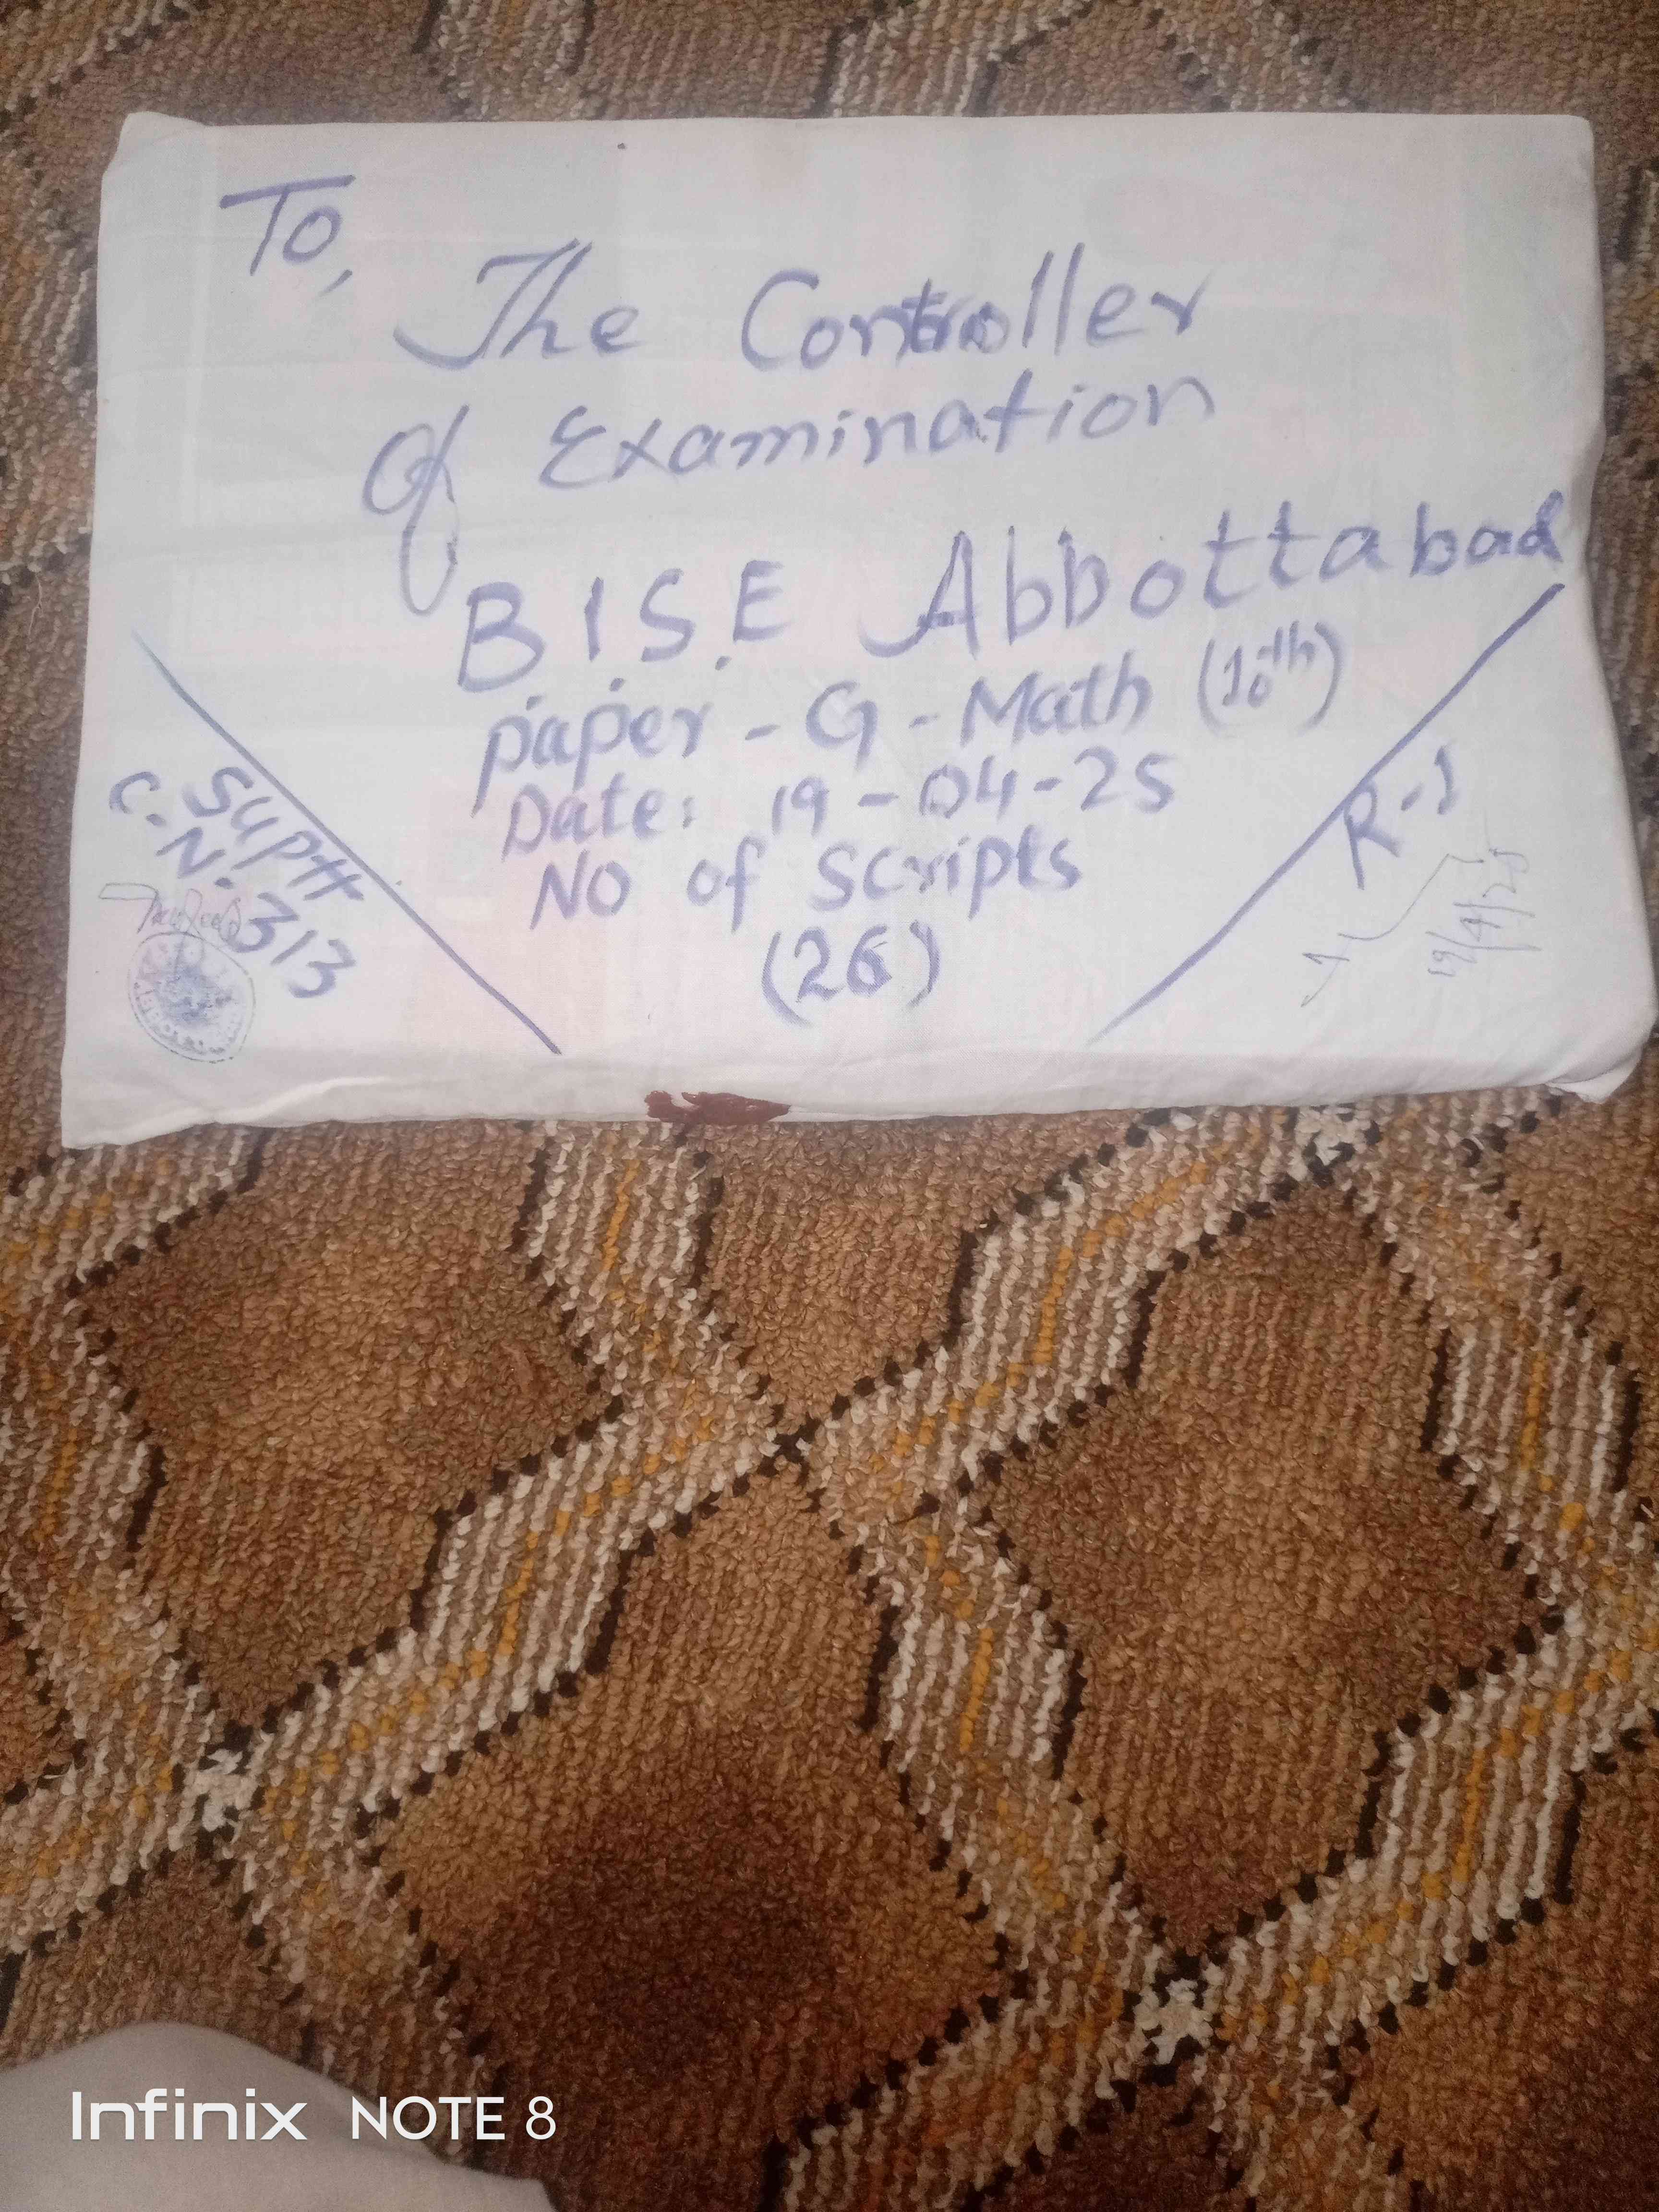 To,
The Controller
Of Examination
B.I.S.E Abbottabad
Paper - G - Math (10th)
Date: 19-04-25
NO of Scripts
(26)
Suptt
C.N. 313
R-1
19/4/25
Infinix NOTE 8